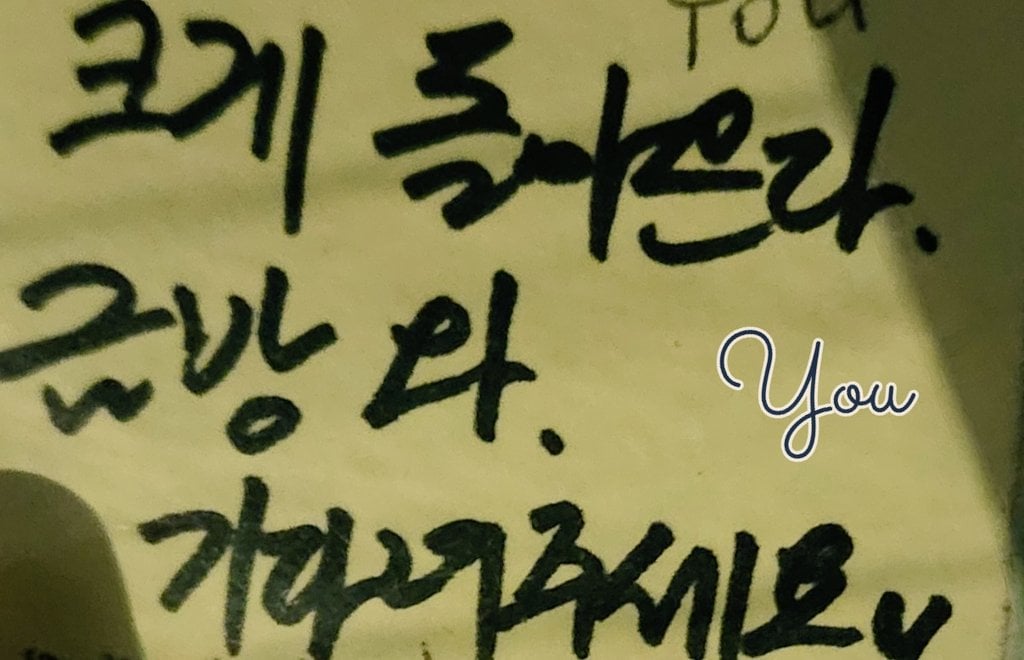 You
크게 돌아온다.
금방 와.
You
기다려주세요